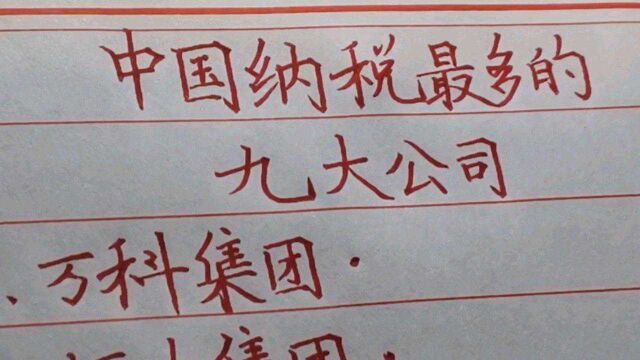 中国纳税最多的
九大公司
、万科集团·